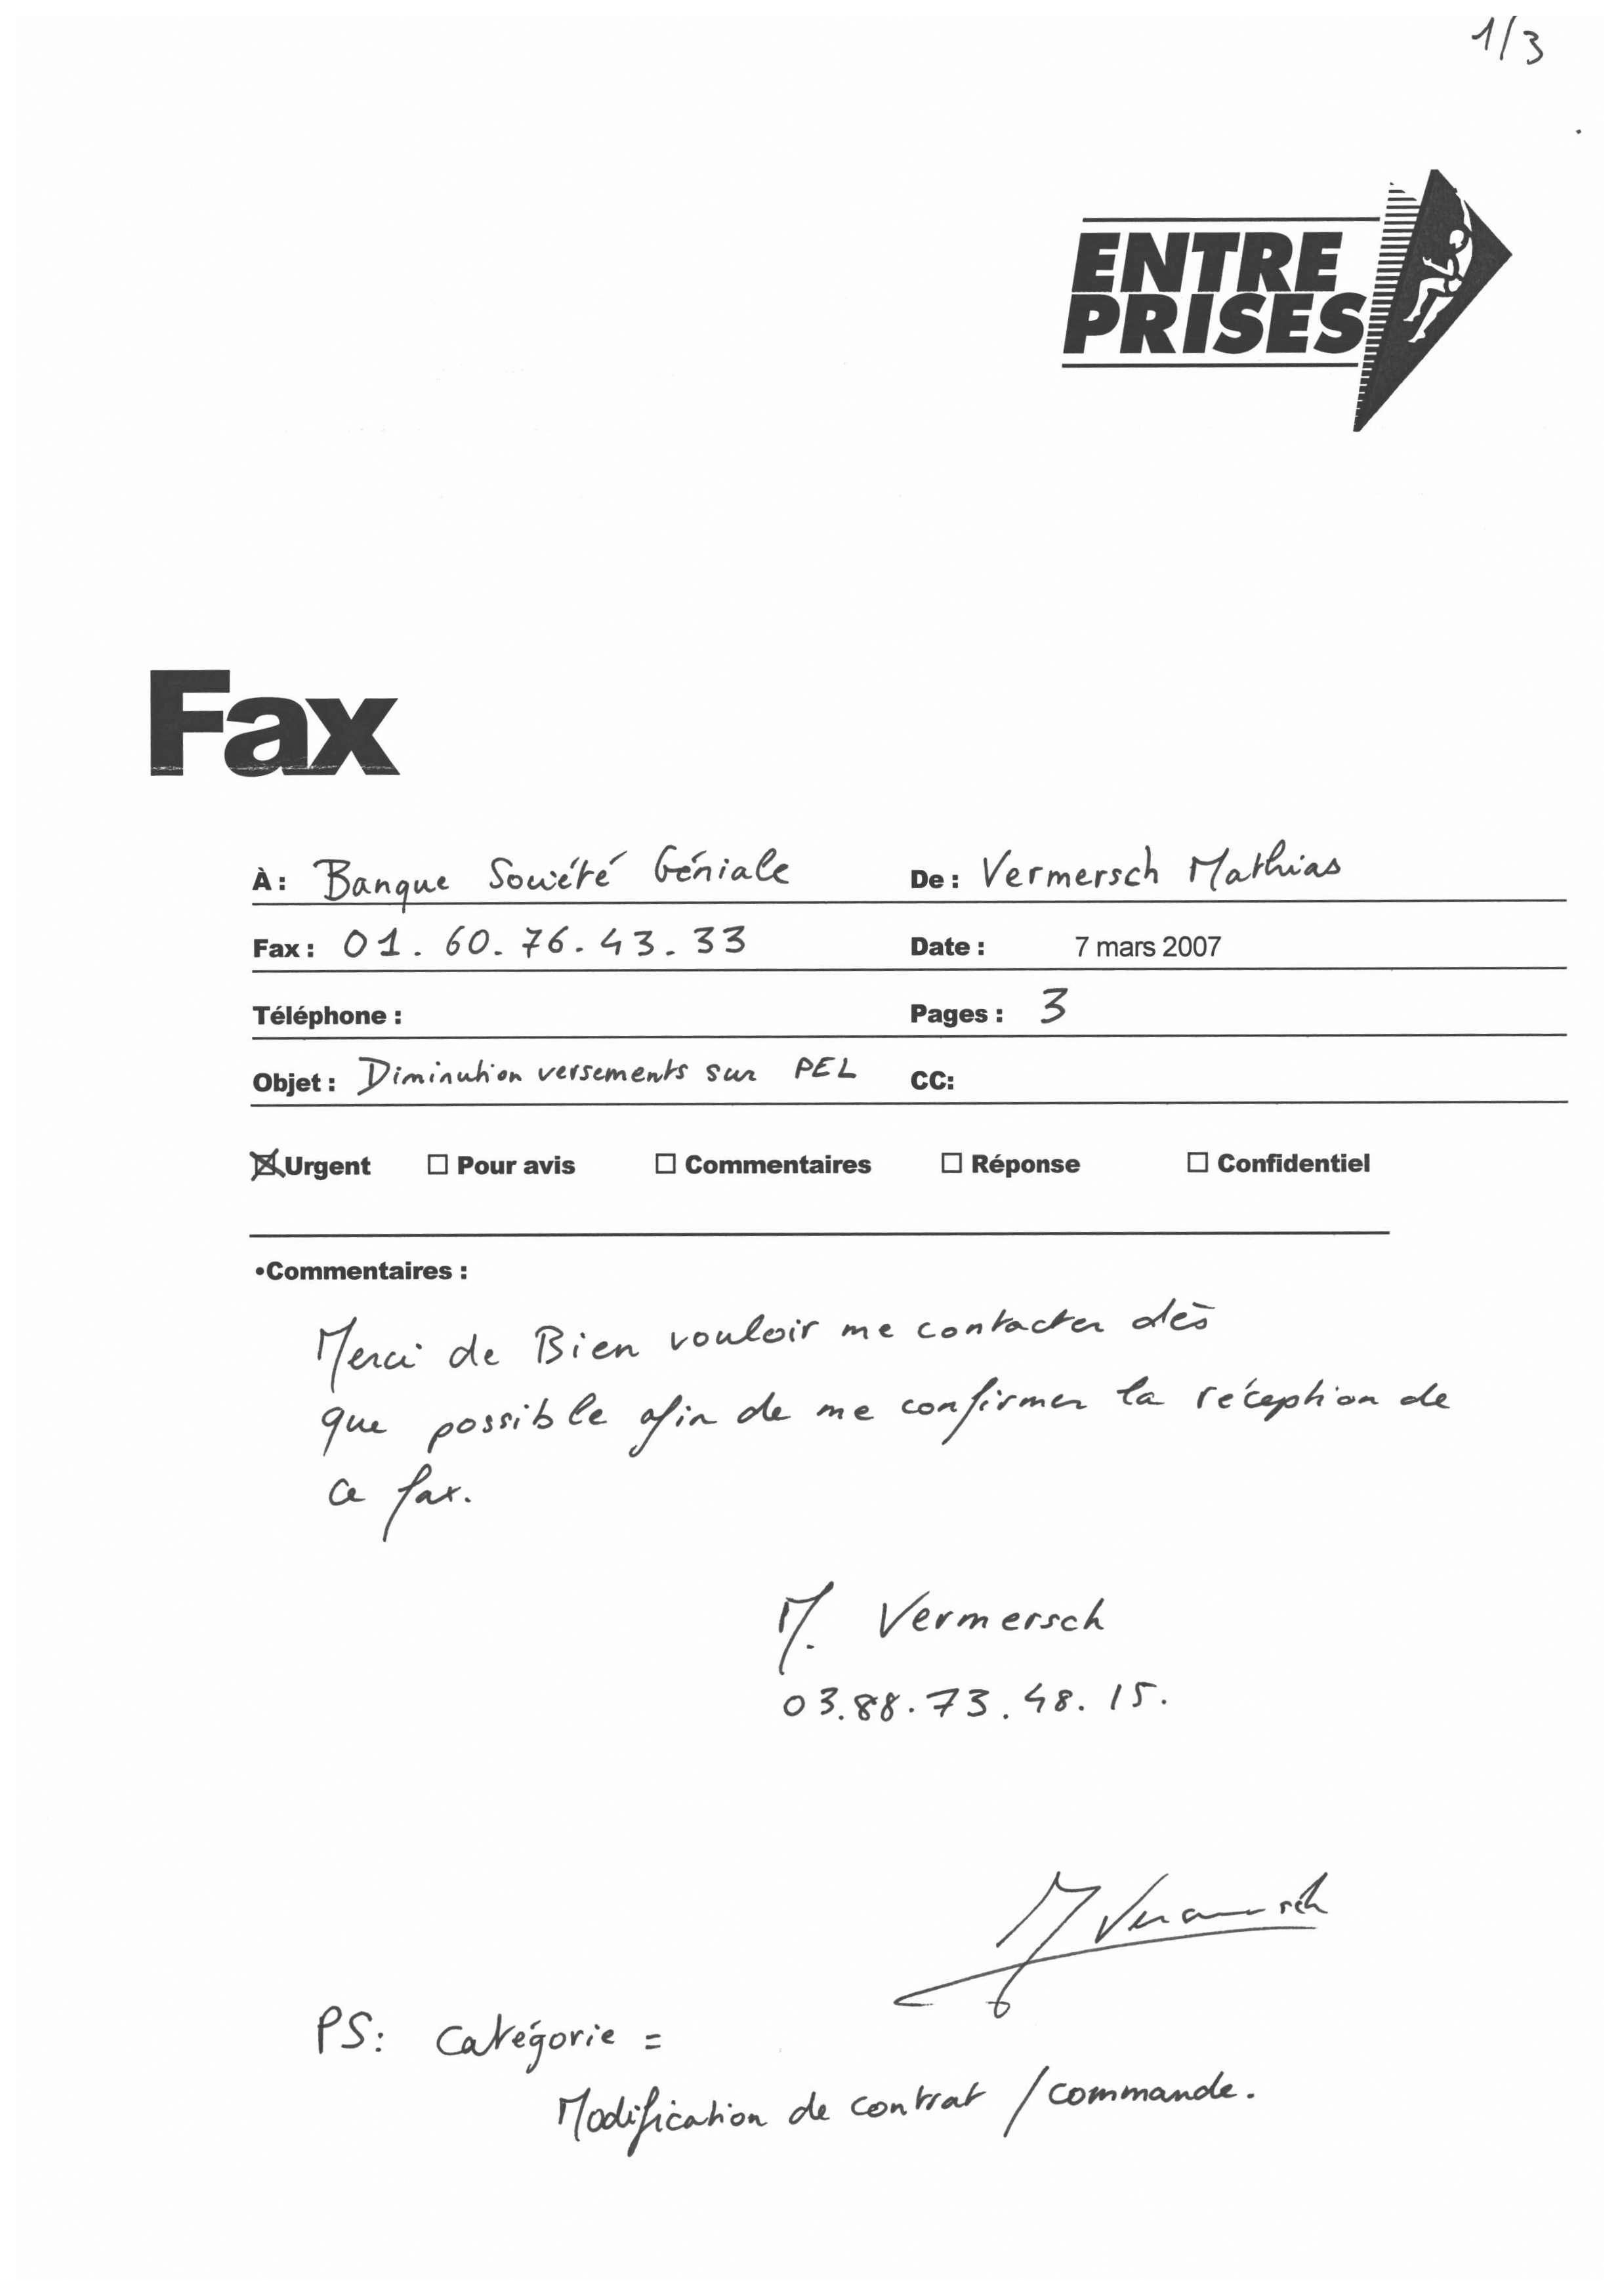 1/3
ENTRE
PRISES
Fax
À : Banque Société Géniale De : Vermersch Mathias
Fax : 01.60.76.43.33 Date : 7 mars 2007
Téléphone : Pages : 3
Objet : Diminution versements sur PEL CC:
☒ Urgent ☐ Pour avis ☐ Commentaires ☐ Réponse ☐ Confidentiel
•Commentaires :
Merci de Bien vouloir me contacter dès
que possible afin de me confirmer la réception de
ce fax.
M. Vermersch
03.88.73.48.15.
M Vermersch
PS: Catégorie =
Modification de contrat / commande.